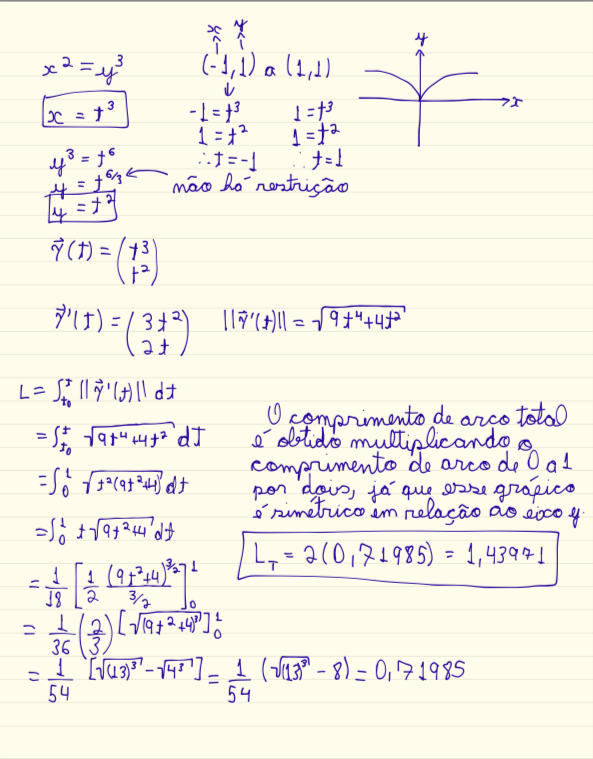 x y
x² = y³ (-1,1) a (1,1)
x = t³
-1 = t³ 1 = t³
1 = t² 1 = t²
∴ t = -1 ∴ t = 1
y³ = t⁶
y = t^(6/3) ← não há restrição
y = t²
y
x
γ⃗(t) = (t³ t²)
γ⃗'(t) = (3t² 2t) ||γ⃗'(t)|| = √(9t⁴+4t²)
L = ∫_{t₀}^{t} ||γ⃗'(t)|| dt
= ∫_{t₀}^{t} √(9t⁴+4t²) dt
= ∫₀¹ √(t²(9t²+4)) dt
= ∫₀¹ t√(9t²+4) dt
= 1/18 [1/2 (9t²+4)^(3/2) / (3/2)]₀¹
= 1/36 (2/3) [√(9t²+4)³]₀¹
= 1/54 [√(13)³ - √4³] = 1/54 (√(13)³ - 8) = 0,71985
O comprimento de arco total
é obtido multiplicando o
comprimento de arco de 0 a 1
por dois, já que esse gráfico
é simétrico em relação ao eixo y.
L_T = 2(0,71985) = 1,43971